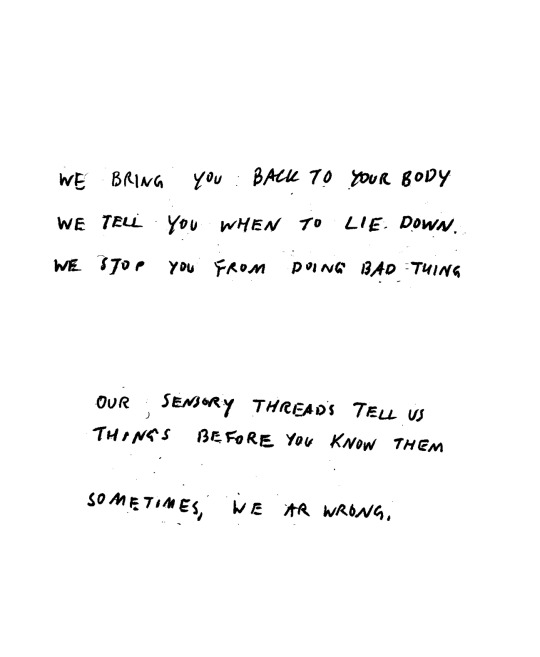 WE BRING YOU BACK TO YOUR BODY
WE TELL YOU WHEN TO LIE DOWN.
WE STOP YOU FROM DOING BAD THING
OUR SENSORY THREADS TELL US
THINGS BEFORE YOU KNOW THEM
SOMETIMES, WE AR WRONG.